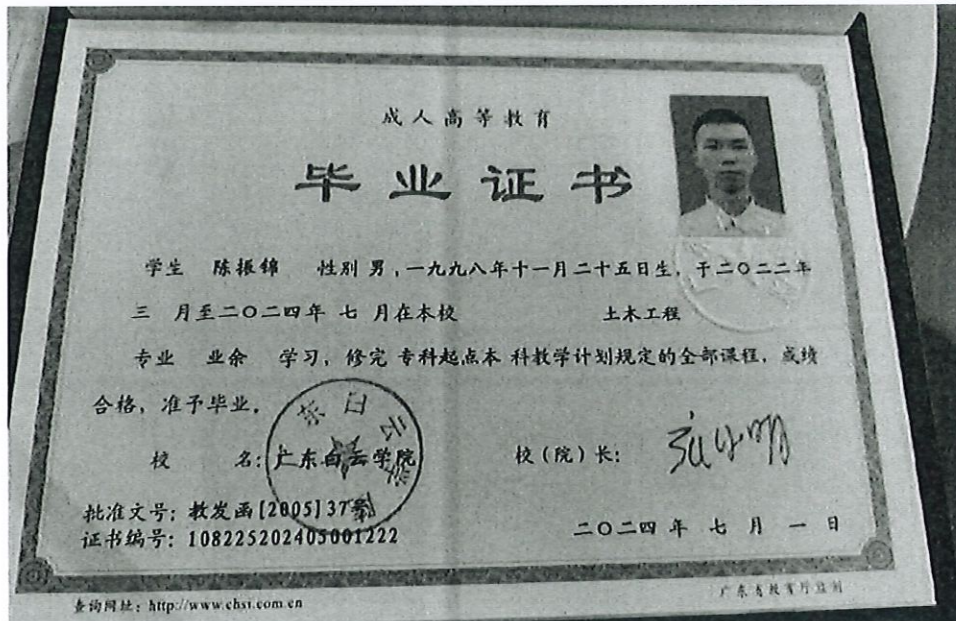 成人高等教育
毕业证书
学生 陈振锦 性别 男，一九九八年十一月二十五日生，于二〇二二年
三 月至二〇二四年 七 月在本校 土木工程
专业 业余 学习，修完 专科起点本 科教学计划规定的全部课程，成绩
合格，准予毕业。
校 名：广东白云学院
校（院）长：
批准文号：教发函[2005]37号
证书编号：108225202405001222
二〇二四 年 七 月 一 日
查询网址：http://www.chsi.com.cn
广东省教育厅监制